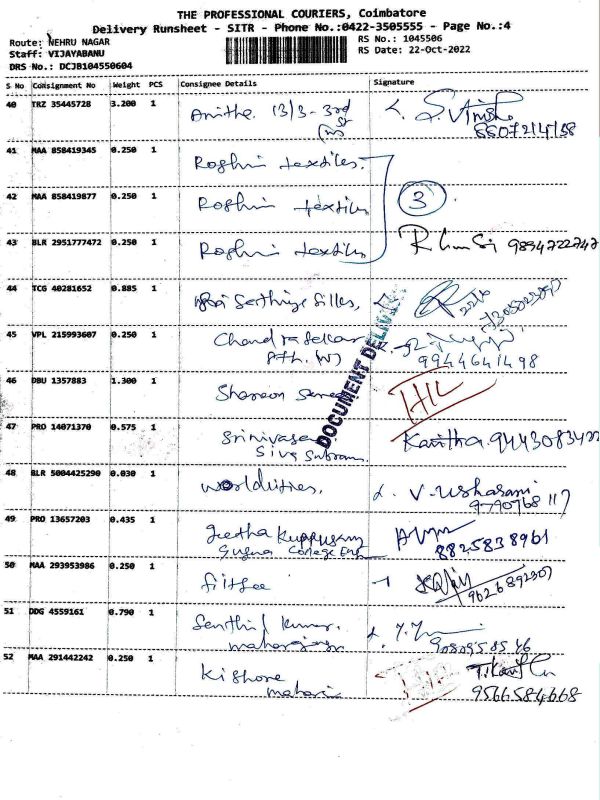 THE PROFESSIONAL COURIERS, Coimbatore
Delivery Runsheet - SITR - Phone No.:0422-3505555 - Page No.:4
Route: NEHRU NAGAR
RS No.: 1045506
Staff: VIJAYABANU
RS Date: 22-Oct-2022
DRS No.: DCJB104550604
S No Consignment No Weight PCS Consignee Details Signature
40 TRZ 35445728 3.200 1 Anitha 13/3-3rd
8807214158
41 MAA 858419345 0.250 1 Roshni textiles.
42 MAA 858419877 0.250 1 Roshni textiles 3
43 BLR 2951777472 0.250 1 Roshni textiles 9894722747
44 TCG 40281652 0.885 1 Silks,
45 VPL 215993607 0.250 1 Chandrasekar
9944641498
DOCUMENT DELIV
46 DBU 1357883 1.300 1
47 PRO 14071370 0.575 1 Srinivasan Kavitha. 9443083422
Siva Subram
48 BLR 5004425290 0.030 1 V. Usharani
9790768117
49 PRO 13657203 0.435 1 Geetha Kuppusamy
Suguna College Eng 8825838961
50 MAA 293953986 0.250 1
9626892307
51 DDG 4559161 0.790 1 Senthil Kumar.
9080958546
52 MAA 291442242 0.250 1 Kishore
9566584668